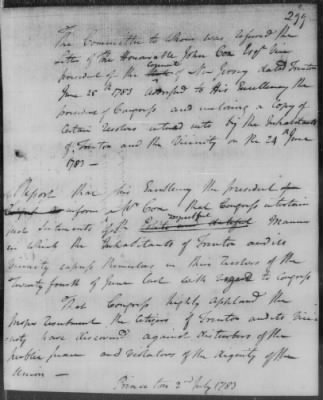 299
The Committee to whom was referred the
letter of the Honourable John Cox Esqr Vice
president of the Council of New Jersey dated Trenton
June 25th 1783 addressed to His Excellency the
president of Congress and inclosing a Copy of
Certain Resolves entered into by the Inhabitants
of Trenton and the Vicinity on the 24th June
1783 —
Report that his Excellency the president of
inform Mr Cox that Congress entertain
just Sentiments of the respectful Manner
in which the Inhabitants of Trenton and its
vicinity express themselves in their Resolves of the
Twenty fourth of June last with regard to Congress
That Congress highly applaud the
proper Resentment the Citizens of Trenton and its Vici-
nity have discovered against disturbers of the
public peace and violators of the dignity of the
Union —
Princeton 2nd July 1783